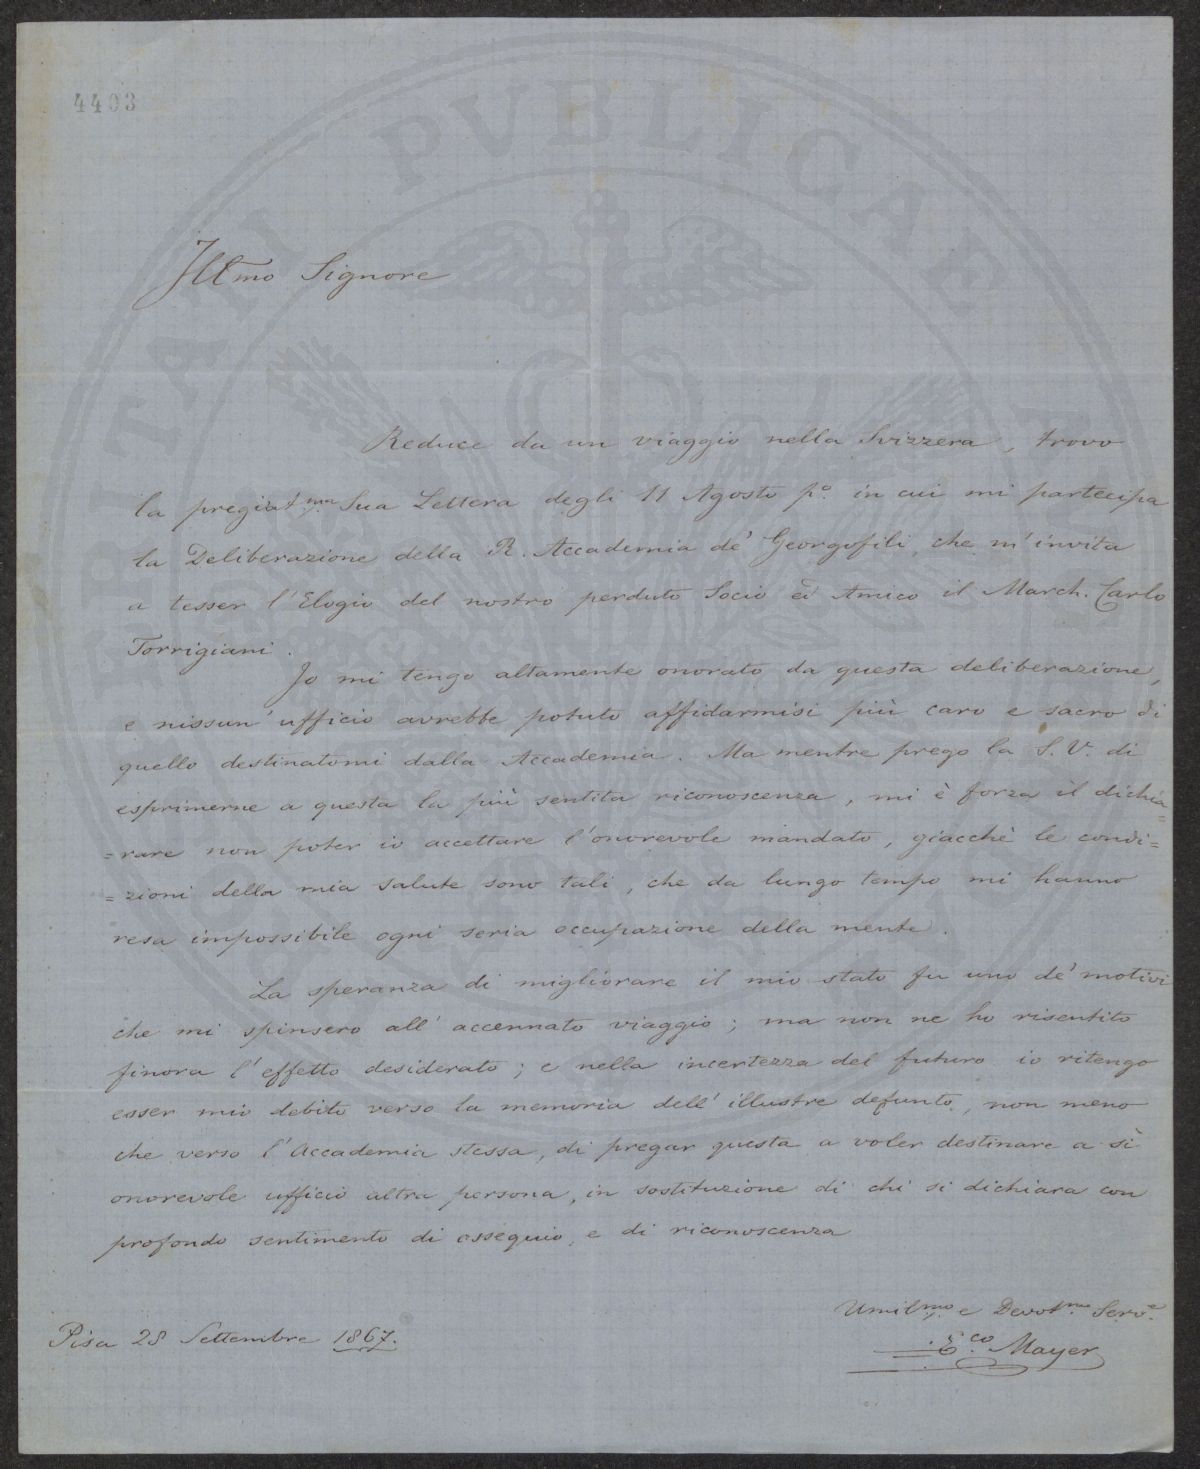 4403
PROSPERITATI PUBLICAE AUGENDAE
Illmo Signore
Reduce da un viaggio nella Svizzera, trovo
la pregiatma Sua Lettera degli 11 Agosto po. in cui mi partecipa
la Deliberazione della R. Accademia de' Georgofili, che m'invita
a tesser l'Elogio del nostro perduto Socio ed Amico il March. Carlo
Torrigiani.
Io mi tengo altamente onorato da questa deliberazione,
e nissun' ufficio avrebbe potuto affidarmisi più caro e sacro di
quello destinatomi dalla Accademia. Ma mentre prego la S. V. di
esprimerne a questa la più sentita riconoscenza, mi è forza il dichia=
=rare non poter io accettare l'onorevole mandato, giacchè le condi=
=zioni della mia salute sono tali, che da lungo tempo mi hanno
resa impossibile ogni seria occupazione della mente.
La speranza di migliorare il mio stato fu uno de' motivi
che mi spinsero all' accennato viaggio; ma non ne ho risentito
finora l'effetto desiderato; e nella incertezza del futuro io ritengo
esser mio debito verso la memoria dell' illustre defunto, non meno
che verso l'Accademia stessa, di pregar questa a voler destinare a sì
onorevole ufficio altra persona, in sostituzione di chi si dichiara con
profondo sentimento di ossequio, e di riconoscenza
Umilmo e Devotmo Serve.
Eco. Mayer
Pisa 28 Settembre 1867.